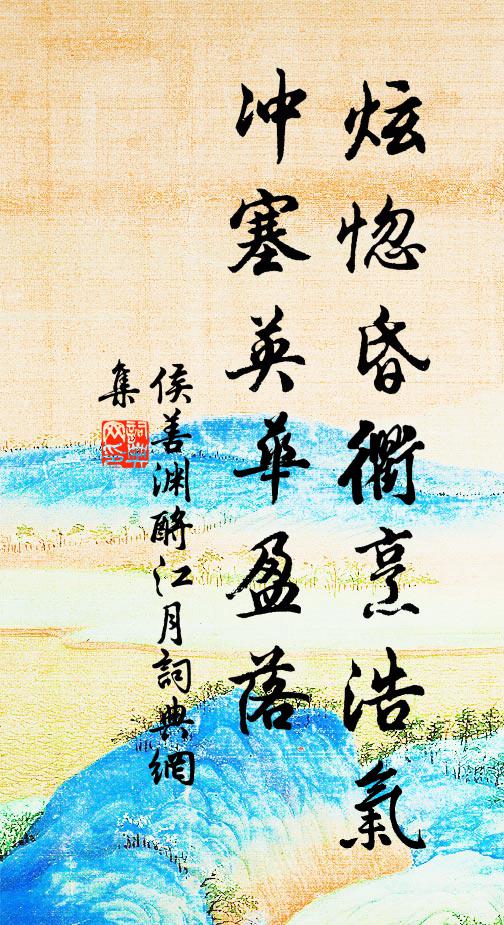 炫惚昏衢烹浩氣
冲塞英華盈落
侯善渊酹江月詞典網
集